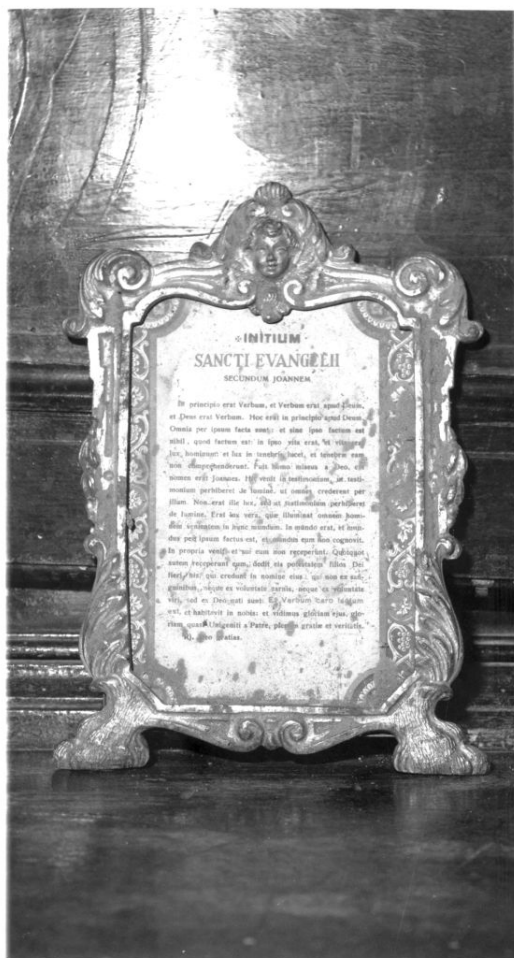 INITIUM
SANCTI EVANGELII
SECUNDUM JOANNEM
In principio erat Verbum, et Verbum erat apud Deum,
et Deus erat Verbum. Hoc erat in principio apud Deum.
Omnia per ipsum facta sunt: et sine ipso factum est
nihil, quod factum est: in ipso vita erat, et vita erat
lux hominum: et lux in tenebris lucet, et tenebræ eam
non comprehenderunt. Fuit homo missus a Deo, cui
nomen erat Joannes. Hic venit in testimonium, ut testi-
monium perhiberet de lumine, ut omnes crederent per
illum. Non erat ille lux, sed ut testimonium perhiberet
de lumine. Erat lux vera, quæ illuminat omnem homi-
nem venientem in hunc mundum. In mundo erat, et mun-
dus per ipsum factus est, et mundus eum non cognovit.
In propria venit, et sui eum non receperunt. Quotquot
autem receperunt eum, dedit eis potestatem filios Dei
fieri, his, qui credunt in nomine ejus: qui non ex san-
guinibus, neque ex voluntate carnis, neque ex voluntate
viri, sed ex Deo nati sunt. Et Verbum caro factum
est, et habitavit in nobis: et vidimus gloriam ejus, glo-
riam quasi Unigeniti a Patre, plenum gratiæ et veritatis.
Deo gratias.